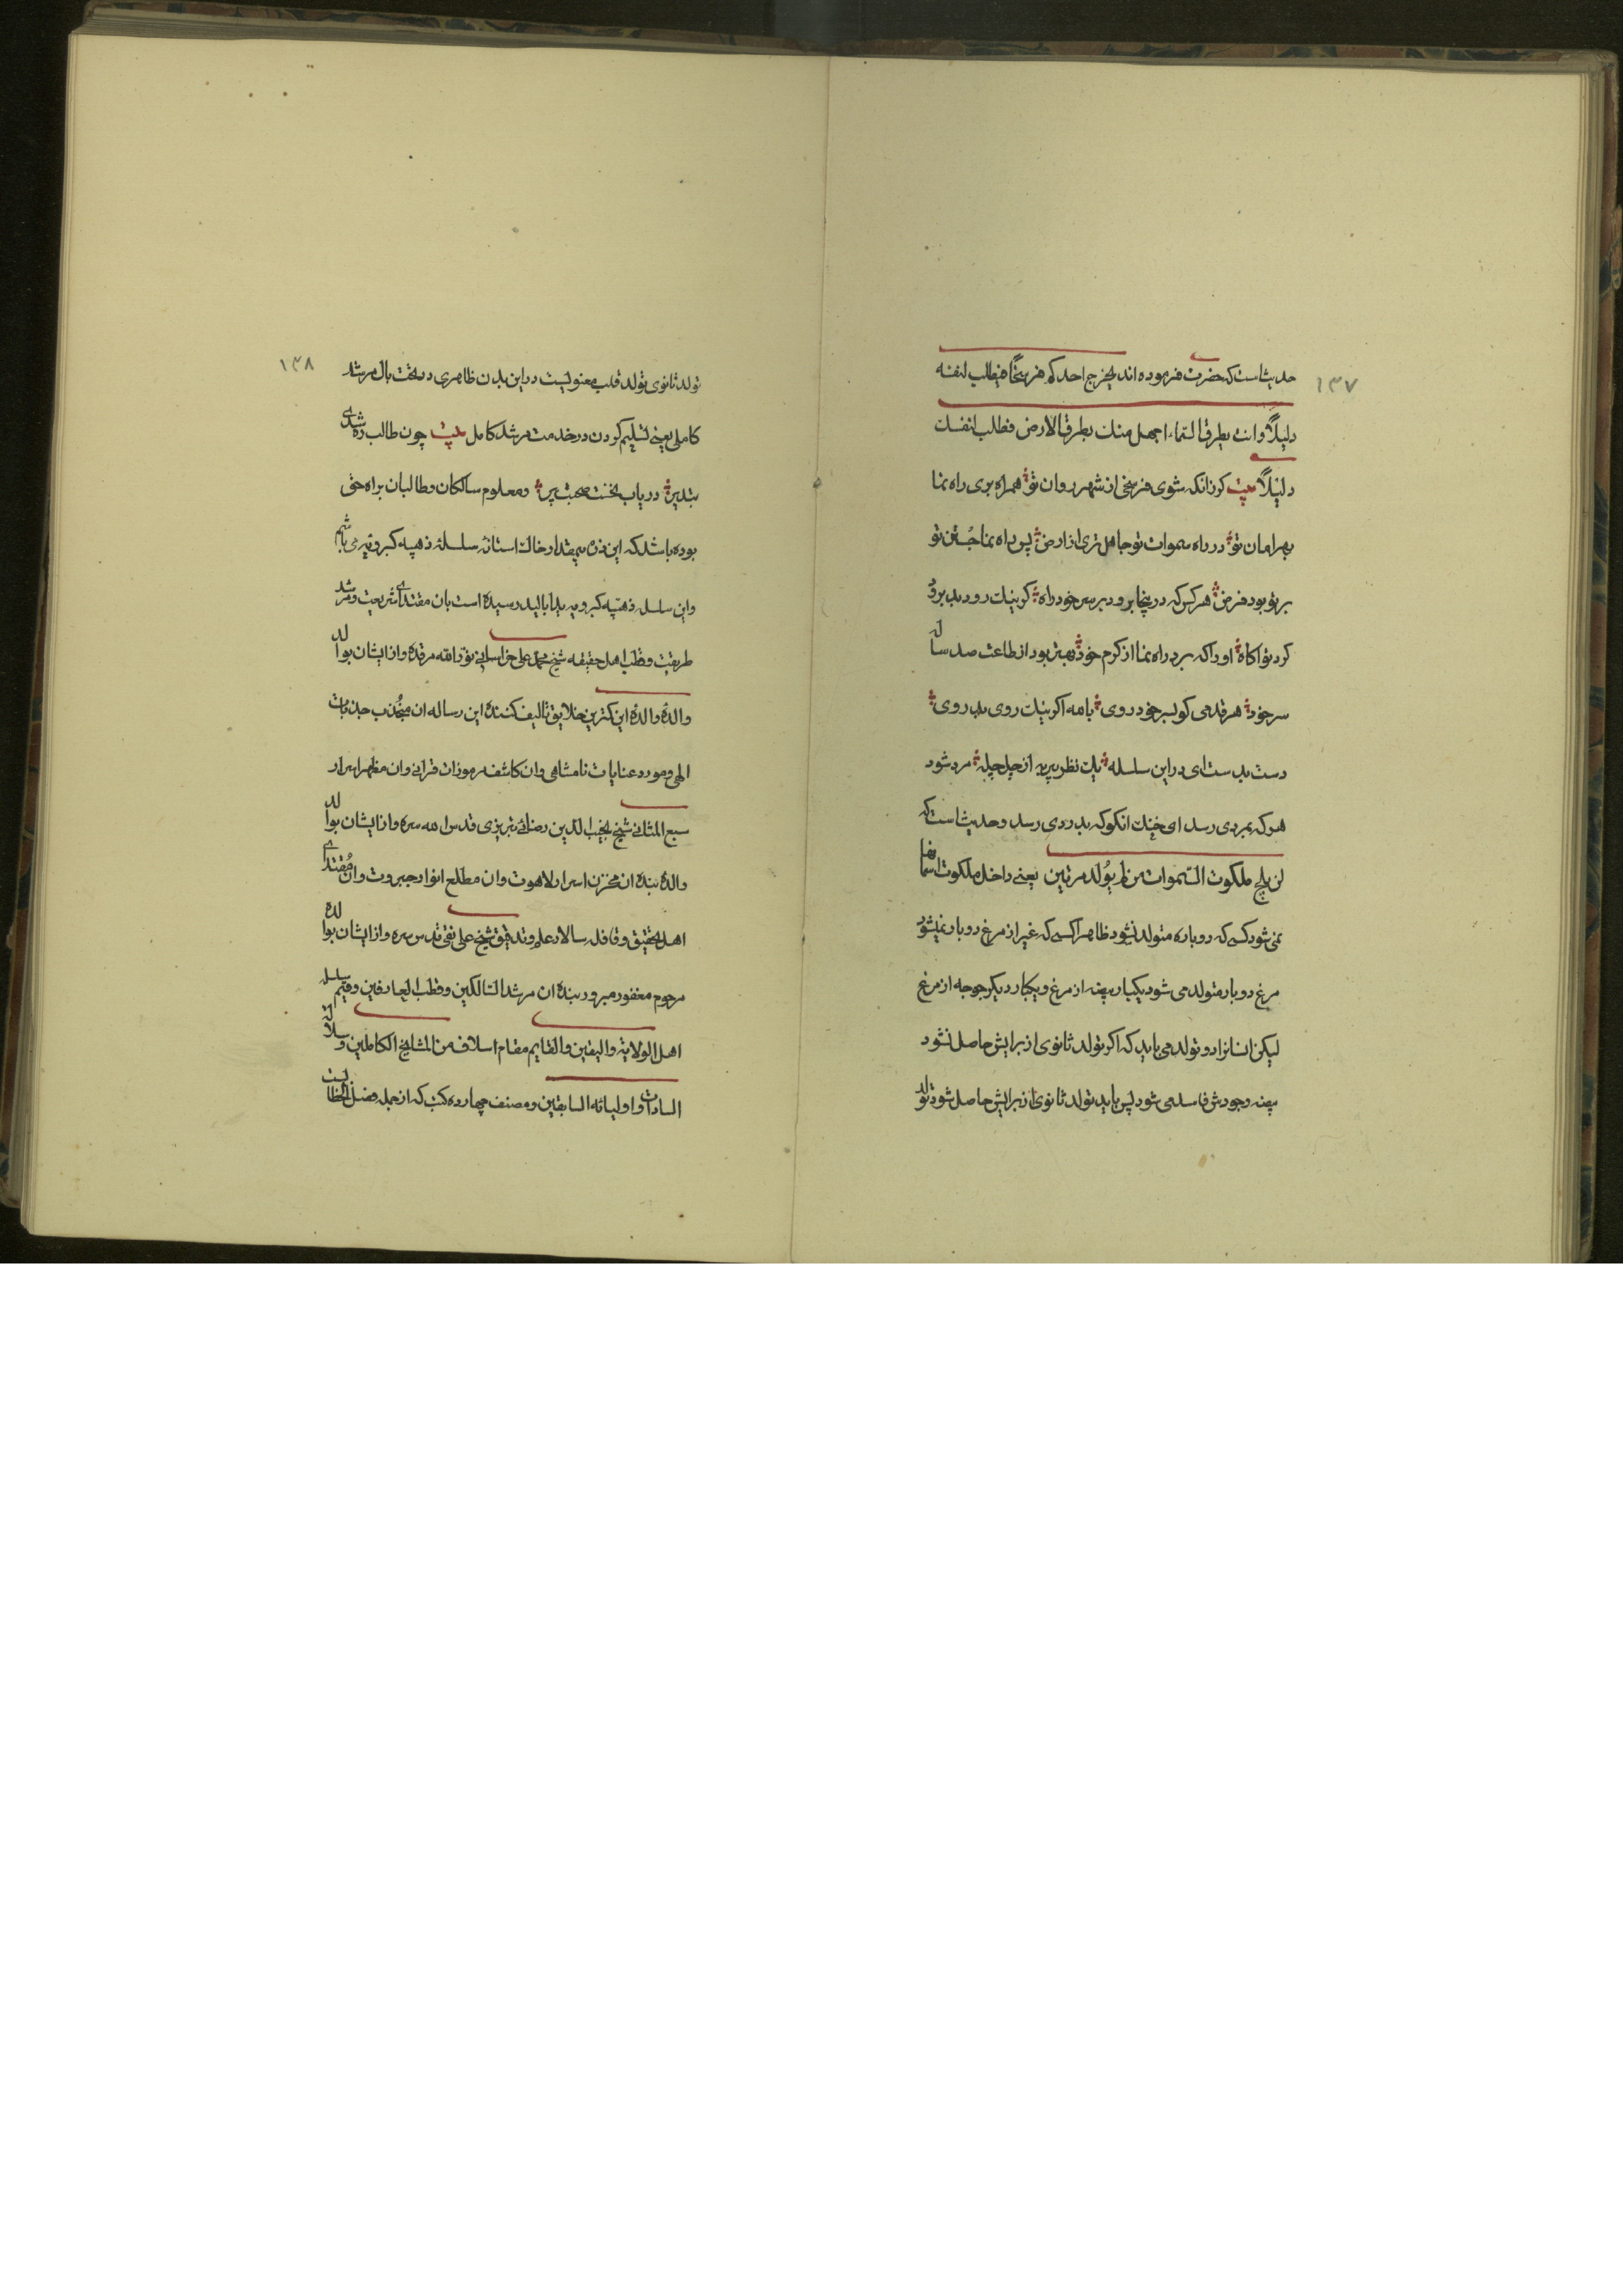 ۱۳۷
حدیث است که حضرت فرموده اند یخرج احدکم فرسخا فیطلب لنفسه
دلیلاً وانت بطرق السماء اجهل منک بطرق الارض فطلب لنفسک
دلیلاً بیت کر زانکه شوی فرسخی از شهر روان تو همراه بری راه نما
بهر امان تو در راه سموات تو جاهل تری از ارض پس راه نما جُستن تو
بر تو بود فرض هر کس که درینجا برود بر سر خود راه کر نیک رود بد برود
کرد تو اکاه او را که برد راه نما از کرم خود بهتر بود از طاعت صد ساله
سر خود هر قدمی کو بسر خود روی بالله اکر نیک روی بد روی
دست بدست ای در این سلسله یک نظر پیر به از چل چله مرد شود
هر که بمردی رسد ای خنک انکو که بدردی رسد و حدیث است که
لن یلج ملکوت السموات من لم یُولد مرتین یعنی داخل ملکوت اسمانها
نمی شود کسی که دوباره متولد نشود ظاهرا کسی که غیر از مرغ دوبار نمیشود
مرغ دوبار متولد می شود یکبار بیضه از مرغ و یکبار دیکر جوجه از مرغ
لیکن انسانرا دو تولد می باید که اکر تولد ثانوی از برایش حاصل نشود
بیضه وجودش فاسد می شود پس باید تولد ثانوی از برایش حاصل شود تولد
۱۳۸
تولد ثانوی تولد قلب معنویست در این بدن ظاهری در تحت بال مرشد
کاملی یعنی تسلیم کردن در خدمت مرشد کامل بیت چون طالب ره شدی
بتدبیر دریاب نخست صحبت پیر و معلوم سالکان و طالبان براه حق
بوده باشد که این ذره بیمقدار خاک استانه سلسلهٔ ذهبیه کبرویه می باشم
و این سلسله ذهبیه کبرویه یدا بالید رسیده است بان مقتدای شریعت و مرشد
طریقت و قطب اهل حقیقه شیخ محمد علی خراسانی نور الله مرقده و از ایشان بوالد
والدهٔ والدهٔ این کمترین خلایق تالیف کنندهٔ این رساله ان مُنجذب جذبات
الهی و مورد عنایات نامتناهی و ان کاشف رموزات قرانی و ان مظهر اسرار
سبع المثانی شیخ نجیب الدین رضائی تبریزی قدس الله سره و از ایشان بوالد
والدهٔ بنده ان مخزن اسرار لاهوت و ان مطلع انوار جبروت و ان مُقتدای
اهل تحقیق و قافله سالار علم و تدقیق شیخ علی نقی قدس سره و از ایشان بوالده
مرحوم مغفور مبرور بنده ان مرشد السالکین و قطب العارفین و قیم سلسله
اهل الولایة والیقین والقایم مقام اسلافه من المشایخ الکاملین و سلالة
السادات و اولیائه السابقین و مصنف چهارده کتب که از جمله فصل الخطابست